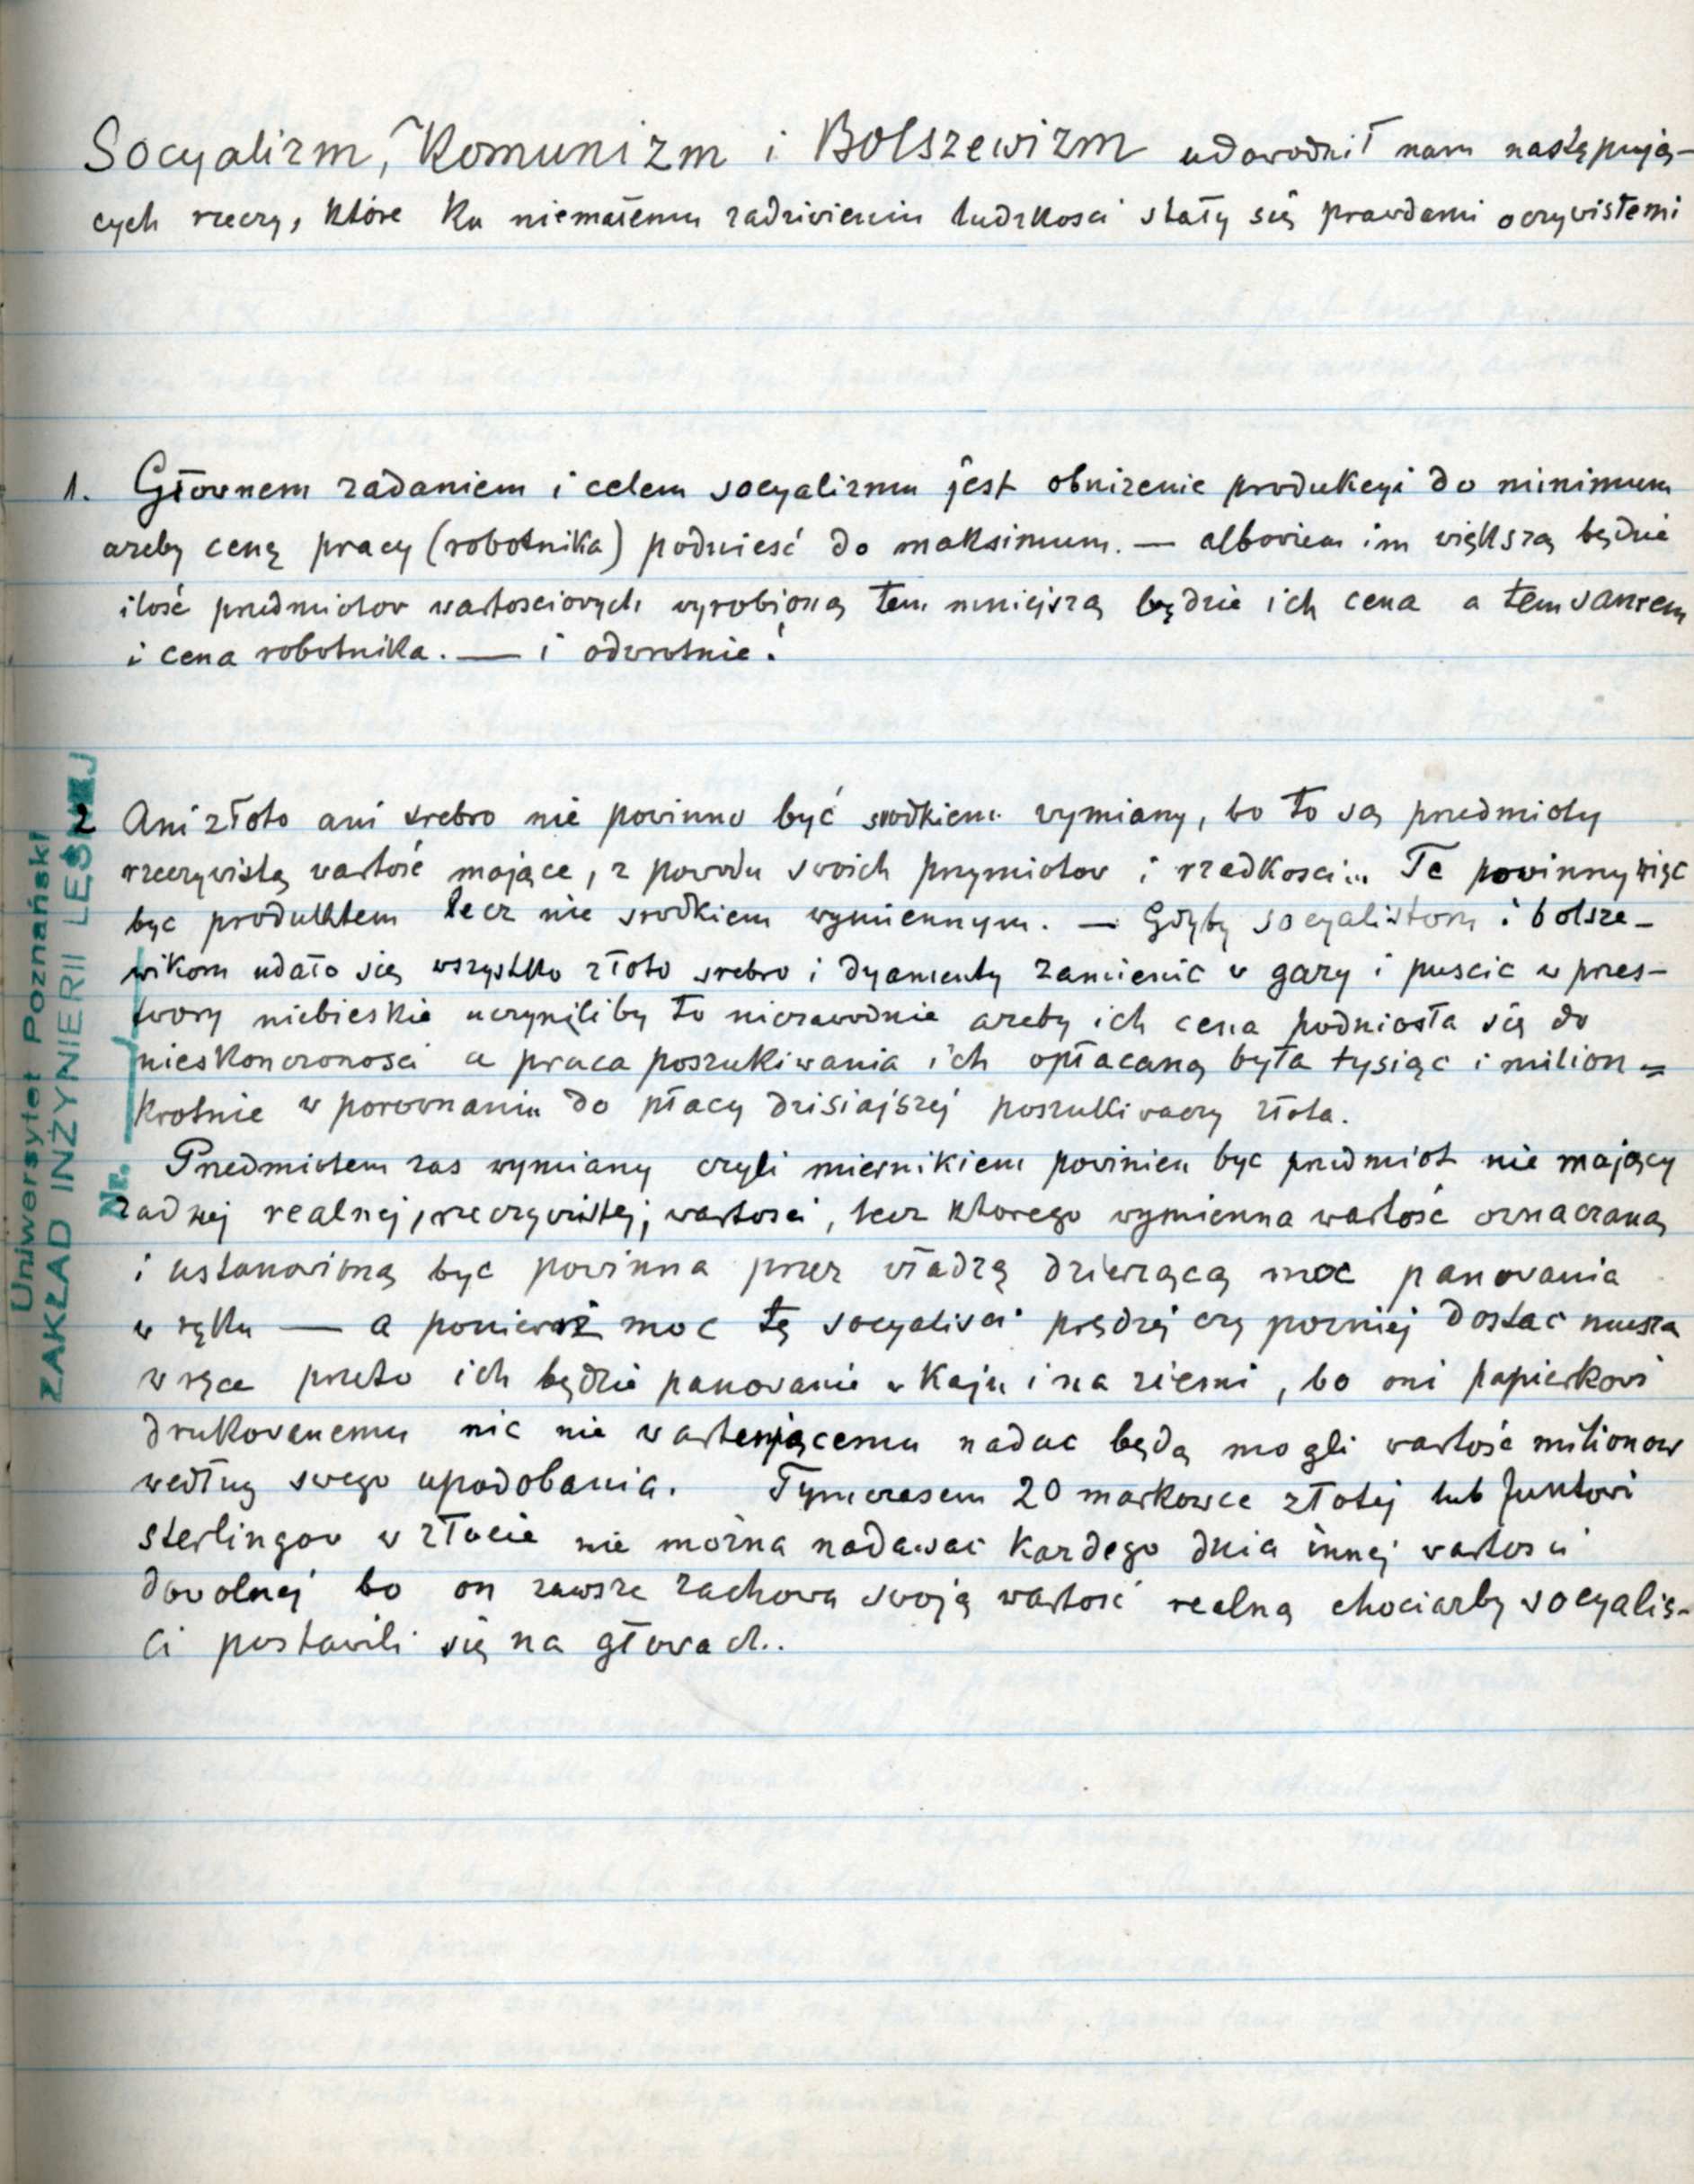 Socyalizm, Komunizm i Bolszewizm udowodnił nam następują-
cych rzeczy, które ku niemałemu zadziwieniu ludzkosci stały się prawdami oczywistemi
1. Głownem zadaniem i celem socyalizmu jest obnizenie produkcyi do minimum
azeby cenę pracy (robotnika) podnieść do maksimum. — albowiem im większą będzie
ilość przedmiotow wartosciowych wyrobioną tem mniejszą będzie ich cena a temsamem
i cena robotnika. — i odwrotnie!
2 Ani złoto ani srebro nie powinno być srodkiem wymiany, bo to są przedmioty
rzeczywistą wartość mające, z powodu swoich przymiotow i rzadkosci. Te powinny więc
byc produktem lecz nie srodkiem wymiennym. — Gdyby socyalistom i bolsze-
wikom udało się wszystko złoto srebro i dyamenty zamienic w gazy i puscic w przes-
twory niebieskie uczyniliby to niezawodnie azeby ich cena podniosła się do
nieskonczonosci a praca poszukiwania ich opłacaną była tysiąc i milion=
krotnie w porownaniu do płacy dzisiajszej poszukiwaczy złota.
Przedmiotem zas wymiany czyli miernikiem powinien byc przedmiot nie mający
zadnej realnej, rzeczywistej, wartosci, lecz ktorego wymienna wartość oznaczaną
i ustanowioną byc powinna przez władzą dzierzącą moc panowania
w ręku — a ponieważ moc tę socyalisci prędzej czy pozniej dostac muszą
w ręce przeto ich będzie panowanie w kraju i na ziemi, bo oni papierkowi
drukowanemu nic nie wartającemu nadac będą mogli wartość milionow
według swego upodobania. Tymczasem 20 markowce złotej lub funtowi
sterlingow w złocie nie można nadawac kazdego dnia innej wartosci
dowolnej bo on zawsze zachowa swoją wartość realną chociazby socyalis-
ci postawili się na głowach..
Uniwersytet Poznański
ZAKŁAD INŻYNIERII LEŚNEJ
Nr.